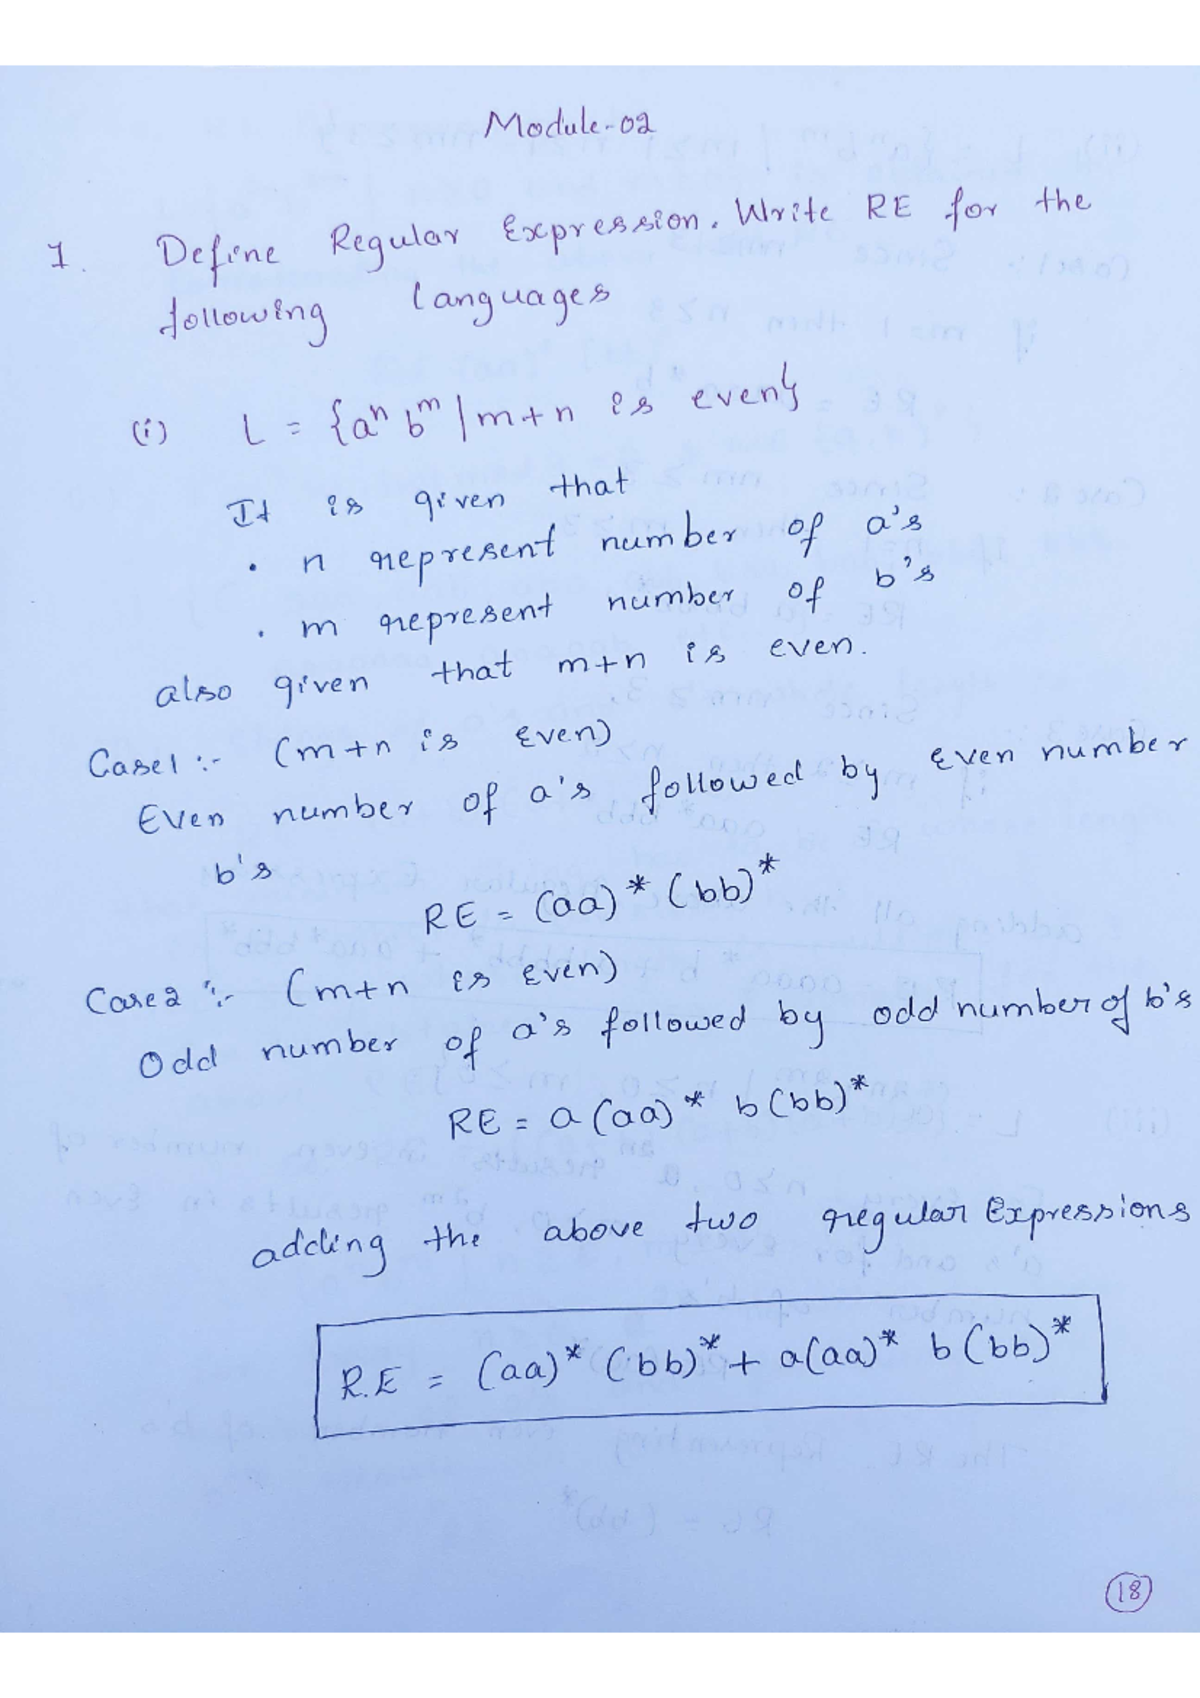 Module-02
1. Define Regular Expression. Write RE for the
following languages
(i) L = {aⁿ bᵐ | m+n is even}
It is given that
• n represent number of a's
• m represent number of b's
also given that m+n is even.
Case1 :- (m+n is Even)
Even number of a's followed by Even number
b's
RE = (aa)* (bb)*
Case2 :- (m+n is Even)
Odd number of a's followed by odd number of b's
RE = a(aa)* b(bb)*
adding the above two regular Expressions
R.E = (aa)* (bb)* + a(aa)* b(bb)*
18